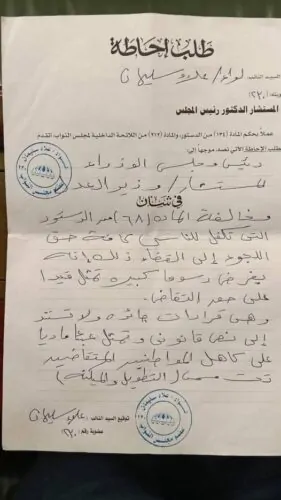 طلب إحاطة
السيد النائب لواء / علاء سليمان
رقم / ٢٣٠
المستشار الدكتور رئيس المجلس
عملاً بحكم المادة (١٣٤) من الدستور، والمادة (٢١٢) من اللائحة الداخلية لمجلس النواب أتقدم
بطلب الإحاطة الآتي نصه، موجهاً إلى:
رئيس مجلس الوزراء
المستشار / وزير العدل
في شأن
مخالفة المادة (٦٨) من الدستور
التى تكفل للناس كافة حق
اللجوء إلى القضاء ذلك إنه
يفرض رسوما كبيرة تمثل قيدا
على حق التقاضى.
وهى قرارات جائرة ولا تستند
إلى نص قانونى وتمثل عبئا ماديا
على كاهل المواطنين المتقاضين
تحت مسمى (التطوير والميكنة)
توقيع السيد النائب : علاء سليمان
عضوية رقم : ٢٣٠